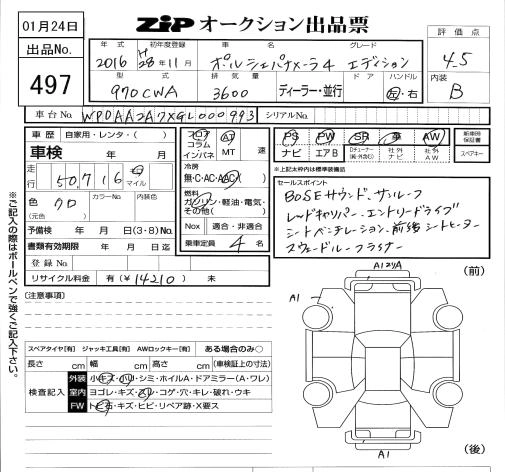 01月24日
ZIP オークション出品票
評価点
4.5
出品No.
497
年式
初年度登録
車名
グレード
2016 H28年11月 ポルシェパナメーラ4 エディション
型式
排気量
ドア
ハンドル
970CWA 3600 ディーラー・並行 左・右
内装
B
車台No. WPDAA2A7XGL000993 シリアルNo.
車歴 自家用・レンタ・( )
車検 年 月
走行 50,716 マイル
色 クロ
(元色)
カラーNo.
内装色
予備検 年 月 日(3・8)No.
書類有効期限 年 月 日迄
登録No.
リサイクル料金 有(¥14210) 無
フロア
コラム
インパネ
AT
MT
速
冷房
無・C・AC・AAC
燃料
ガソリン・軽油・電気・
その他( )
Nox 適合・非適合
乗車定員 4 名
PS PW SR 革 AW
ナビ エアB Dチューナー(純・外含む) 社外ナビ 社外AW
新車時保証書
スペアキー
*上記太枠内は標準装備品
セールスポイント
BOSEサウンド、サンルーフ
レッドキャリパー、エントリードライブ
シートベンチレーション、前後シートヒーター
スウェードルーフライナー
※ご記入の際はボールペンで強くご記入下さい。
(注意事項)
スペアタイヤ[有] ジャッキ工具[有] AWロックキー[有] ある場合のみ○
長さ cm 幅 cm 高さ cm (車検証上の寸法)
検査記入
外装 小キズ・凹・シミ・ホイルA・ドアミラー(A・ワレ)
室内 ヨゴレ・キズ・スリ・コゲ・穴・キレ・破れ・ウキ
FW トビ石・キズ・ヒビ・リペア跡・X要ス
A1
(前)
A1
(後)